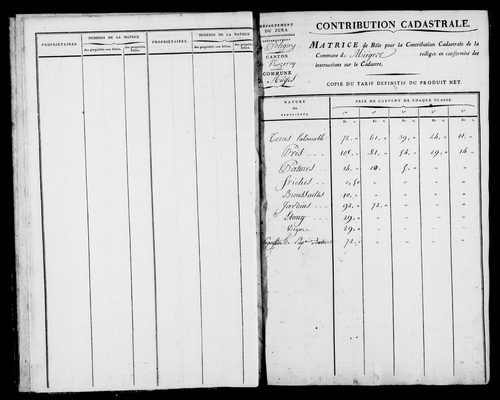 PROPRIÉTAIRES.
NUMÉROS DE LA MATRICE
des propriétés non bâties.
des propriétés bâties.
PROPRIÉTAIRES.
NUMÉROS DE LA MATRICE
des propriétés non bâties.
des propriétés bâties.
DÉPARTEMENT
DU JURA
Poligny
CANTON
Nozeroy
COMMUNE
CONTRIBUTION CADASTRALE.
MATRICE de Rôle pour la Contribution Cadastrale de la
Commune de rédigée en conformité des
instructions sur le Cadastre.
COPIE DU TARIF DÉFINITIF DU PRODUIT NET.
NATURE
DES
PROPRIÉTÉS.
PRIX DE L'ARPENT DE CHAQUE CLASSE.
Terres labourables 72. 61. 39. 24. 11.
Prés 108. 81. 54. 29. 14.
Pâtures 14. 10. 5.
friches 0,50
Broussailles 10.
Jardins 92. 72.
Etang 29.
29.
Superficie des Prop.tés Baties 72.